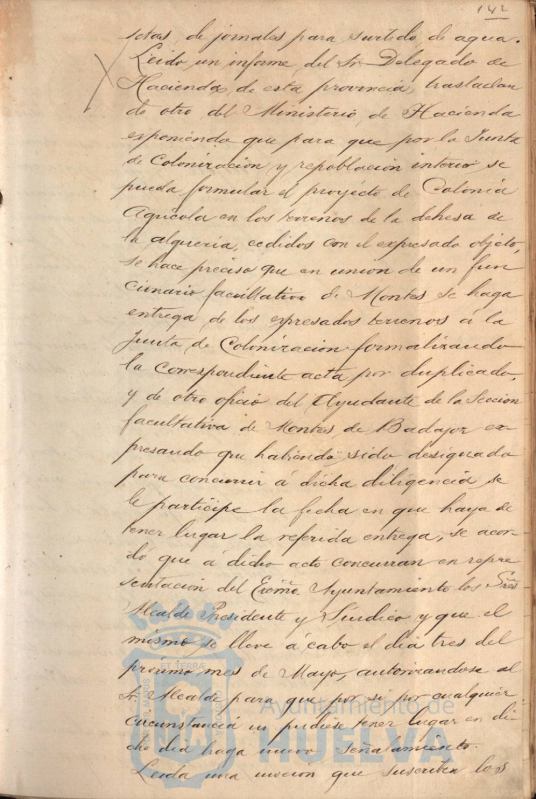 142
de jornales para surtido de agua.
Leido un informe del Sr Delegado de
Hacienda de esta provincia, trasladan
do otro del Ministerio de Hacienda
exponiendo que para que por la Junta
de Colonizacion y repoblacion interior se
pueda formular el proyécto de Colonia
Agricola en los terrenos de la dehesa de
la alqueria, cedidos con el expresado objeto,
se hace preciso que en union de un fun
cionario facultativo de Montes se haga
entrega de los expresados terrenos á la
Junta de Colonizacion formalizando
la correspondiente acta por duplicado,
y de otro oficio del Ayudante de la Seccion
facultativa de Montes de Badajoz ex
presando que habiendo sido designado
para concurrir á dicha diligencia se
le participe la fecha en que haya de
tener lugar la referida entrega, se acor
dó que á dicho acto concurran en repre
sentacion del Excmo Ayuntamiento los Sres
Alcalde Presidente y Sindico y que el
mismo se lleve á cabo el dia tres del
próximo mes de Mayo, autorizandose al
Sr Alcalde para que por si por cualquier
circunstancia no pudiese tener lugar en di
cho dia haga nuevo señalamiento.
Leida una mocion que suscriben los
Ayuntamiento de
HUELVA